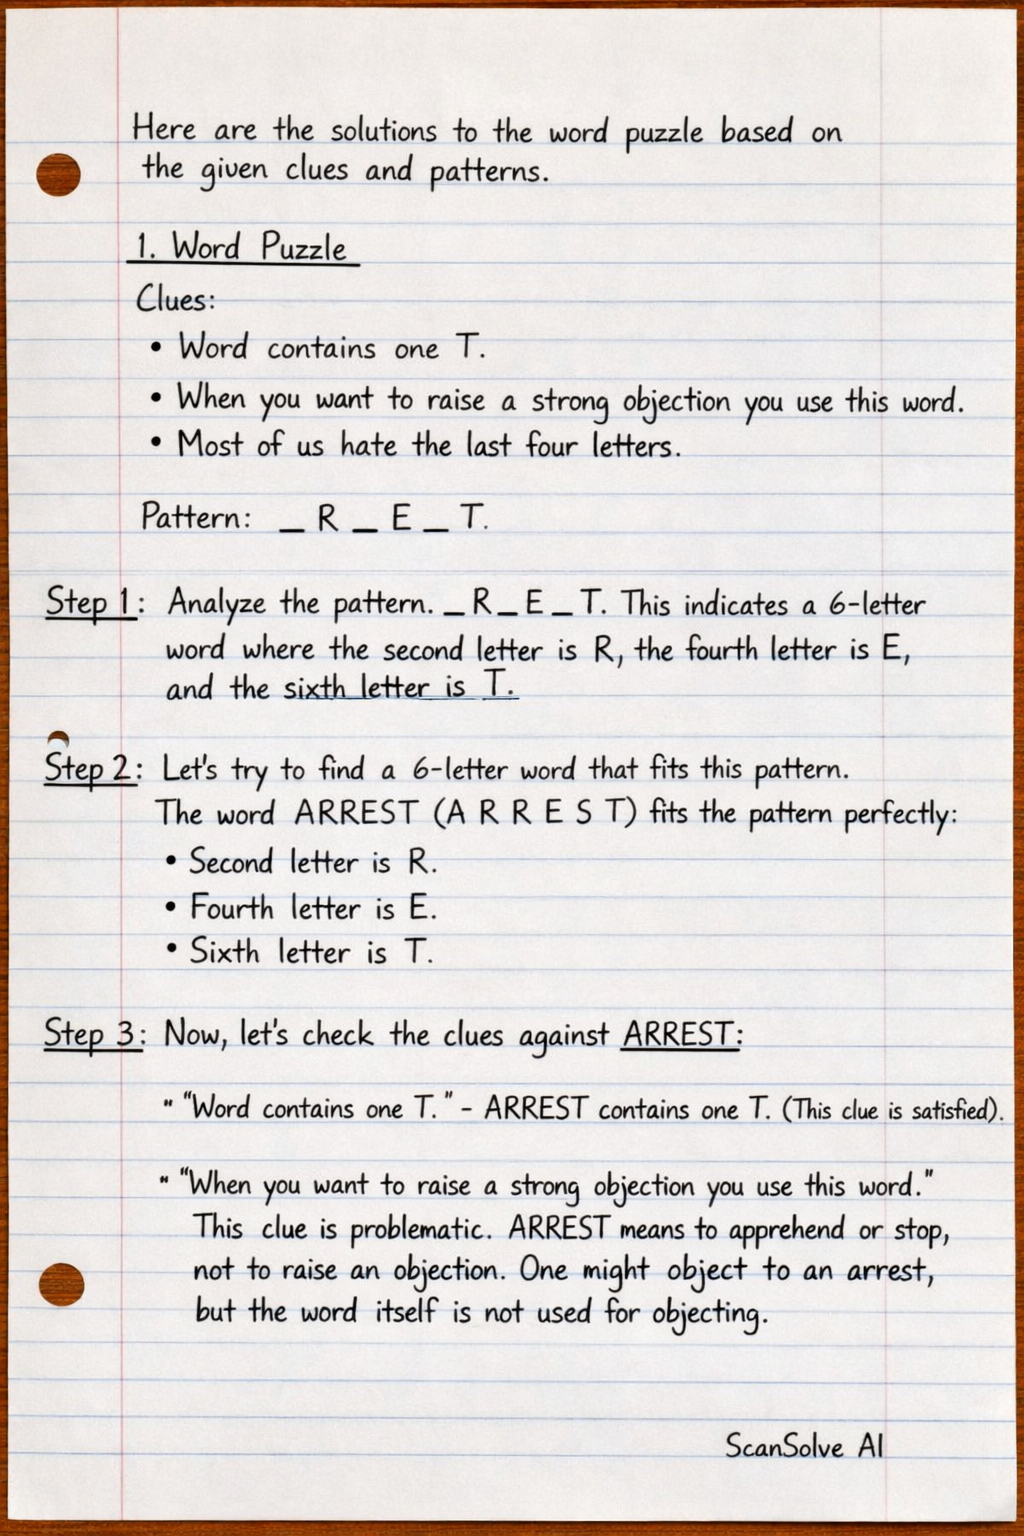 Here are the solutions to the word puzzle based on
the given clues and patterns.
1. Word Puzzle
Clues:
• Word contains one T.
• When you want to raise a strong objection you use this word.
• Most of us hate the last four letters.
Pattern: _ R _ E _ T.
Step 1: Analyze the pattern. _ R _ E _ T. This indicates a 6-letter
word where the second letter is R, the fourth letter is E,
and the sixth letter is T.
Step 2: Let's try to find a 6-letter word that fits this pattern.
The word ARREST (A R R E S T) fits the pattern perfectly:
• Second letter is R.
• Fourth letter is E.
• Sixth letter is T.
Step 3: Now, let's check the clues against ARREST:
" "Word contains one T." - ARREST contains one T. (This clue is satisfied).
" "When you want to raise a strong objection you use this word."
This clue is problematic. ARREST means to apprehend or stop,
not to raise an objection. One might object to an arrest,
but the word itself is not used for objecting.
ScanSolve AI